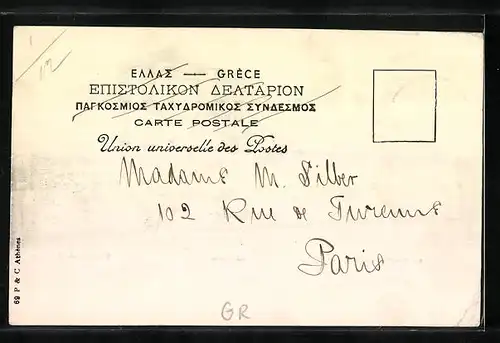 ΕΛΛΑΣ — GRÈCE
ΕΠΙΣΤΟΛΙΚΟΝ ΔΕΛΤΑΡΙΟΝ
ΠΑΓΚΟΣΜΙΟΣ ΤΑΧΥΔΡΟΜΙΚΟΣ ΣΥΝΔΕΣΜΟΣ
CARTE POSTALE
Union universelle des Postes
Madame M. Silber
102 Rue de Turenne
Paris
69 P & C Athènes
GR